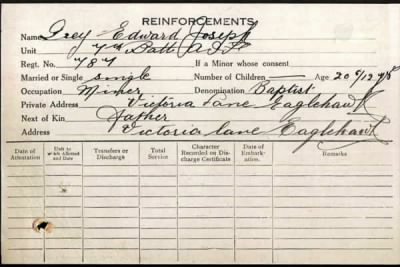 REINFORCEMENTS
Name Grey Edward Joseph
Unit 7th Batt A.I.F.
Regt. No. 787 If a Minor whose consent
Married or Single single Number of Children — Age 20
Occupation Miner Denomination Baptist
Private Address Victoria Lane Eaglehawk
Next of Kin Father
Address Victoria Lane Eaglehawk
Date of Attestation Unit to which Allotted and Date Transfers or Discharge Total Service Character Recorded on Discharge Certificate Date of Embarkation. Remarks